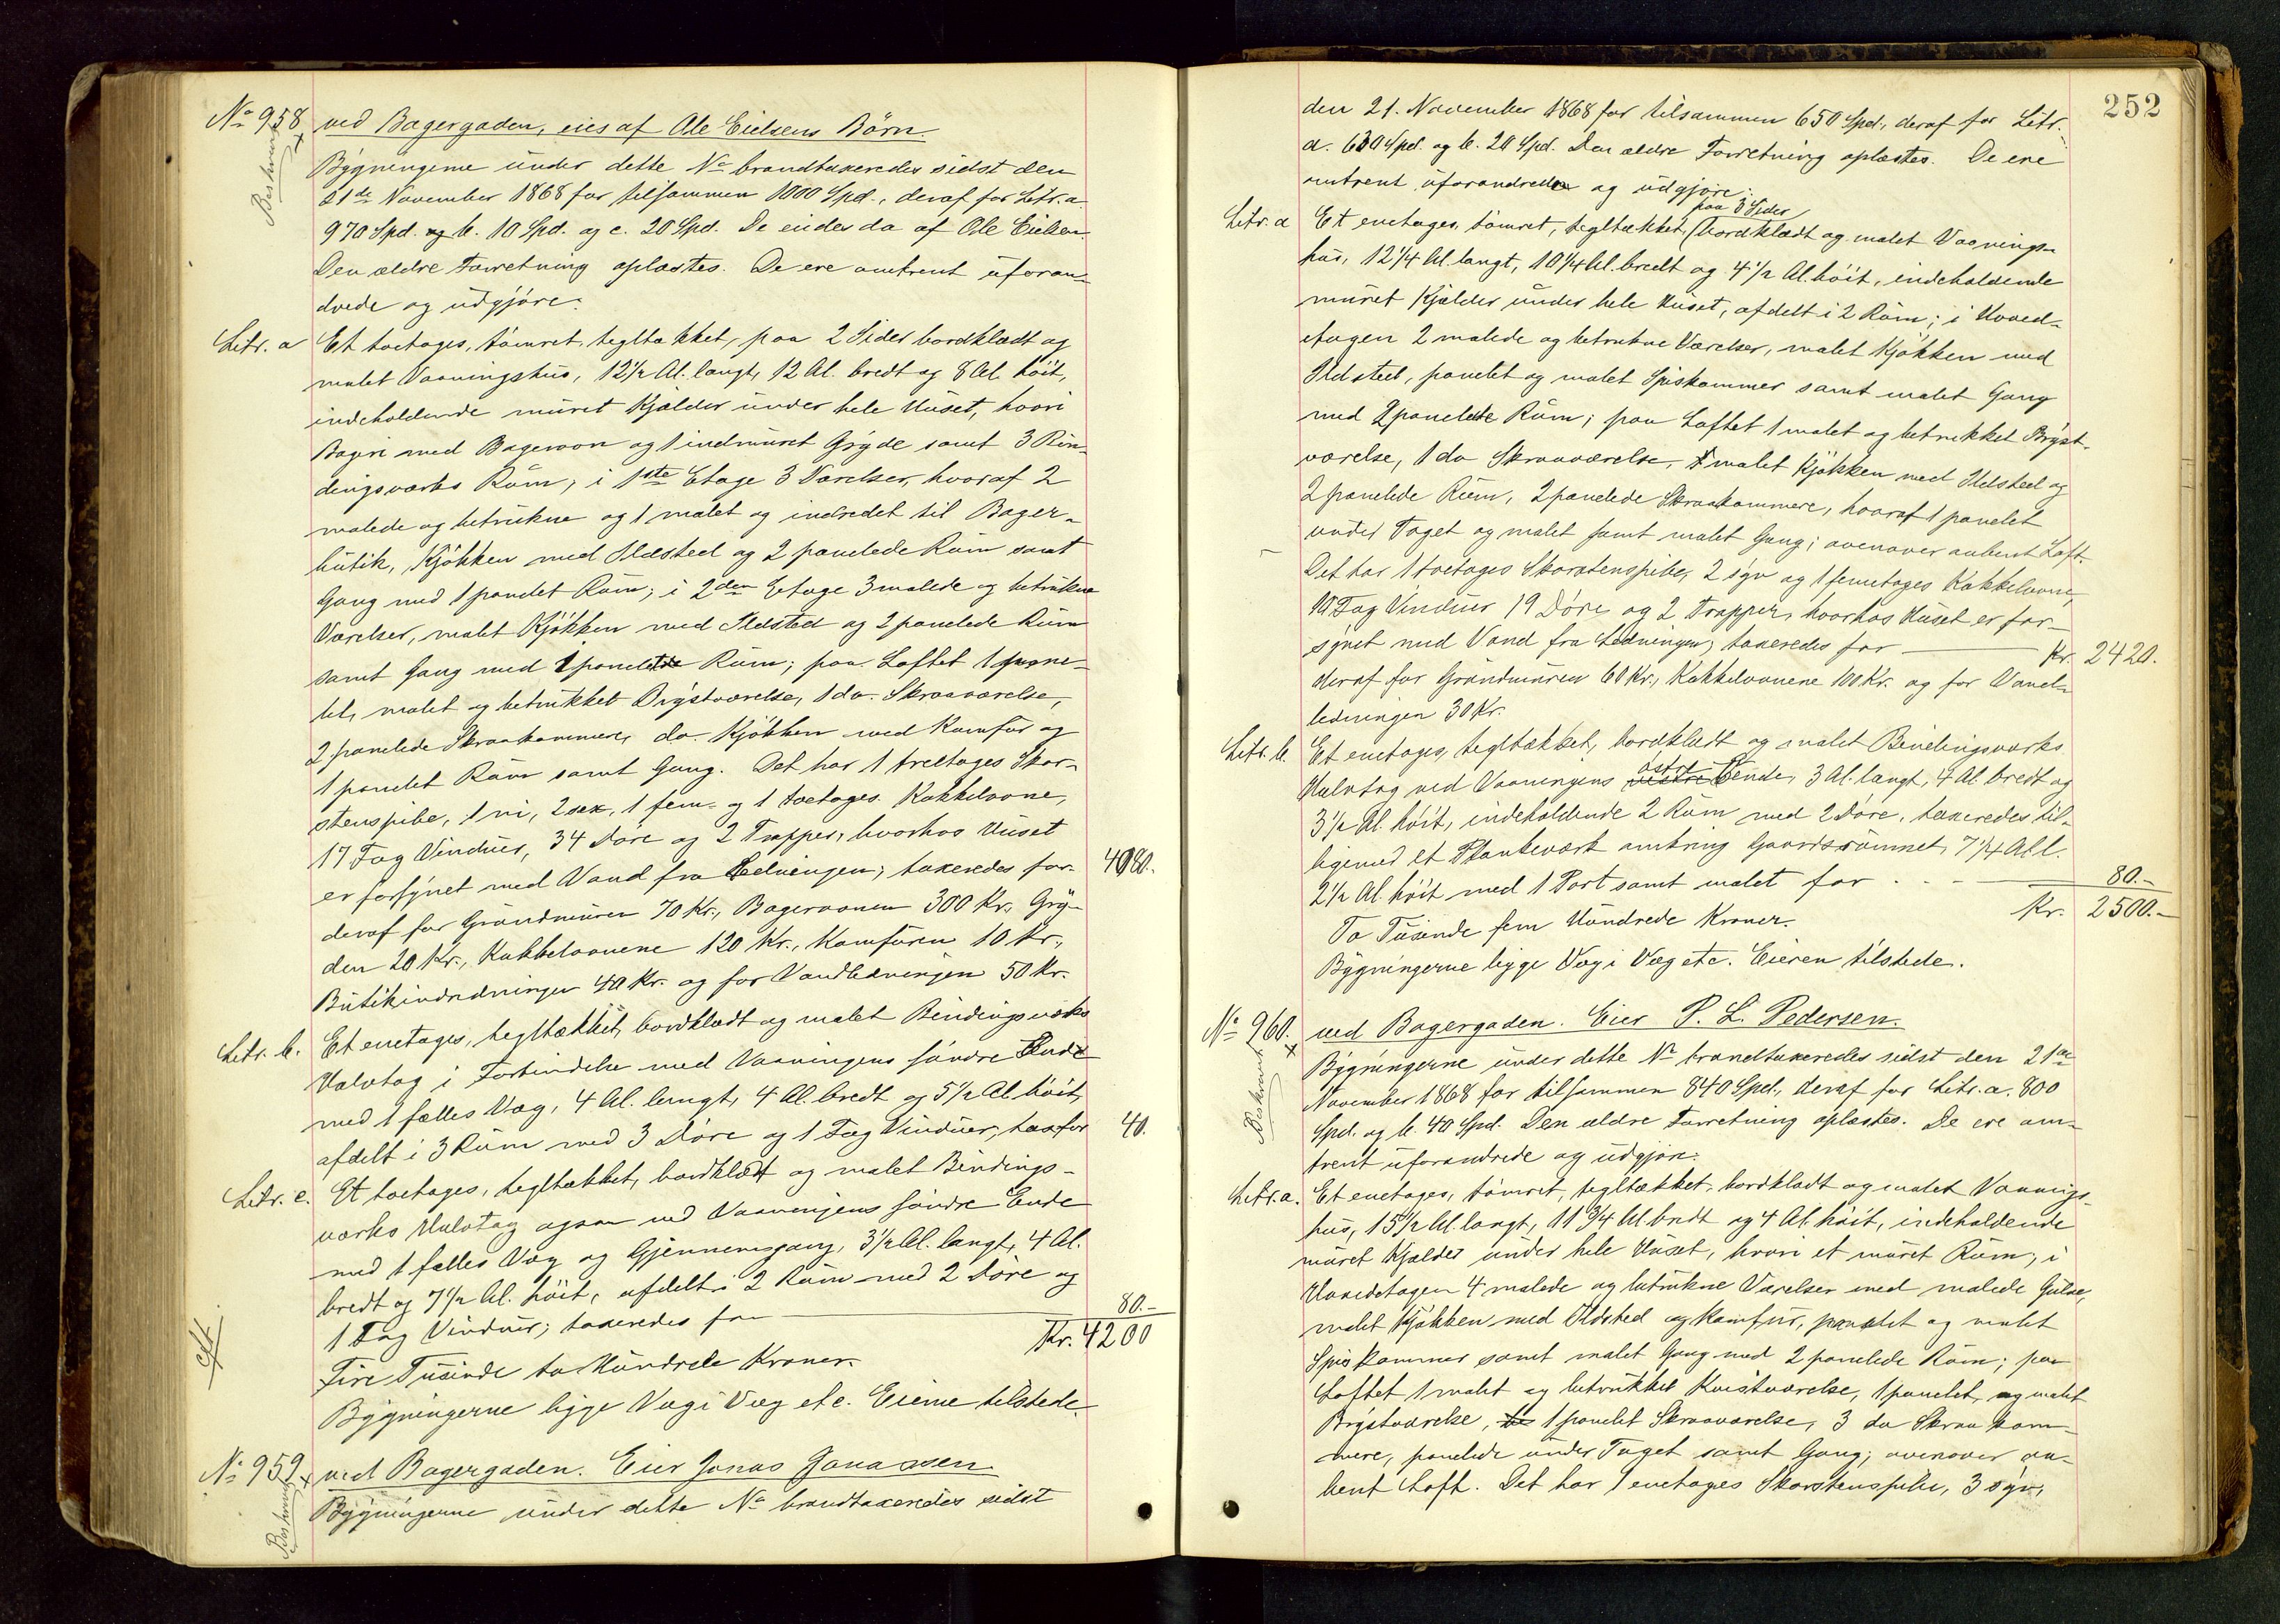 No 958 ved Bagergaden, eies af Ole Eielsens Börn.
Beskrevet
Bygningerne under dette No brandtaxeredes sidst den
21de November 1868 for tilsammen 1000 Spd., deraf for Litr. a
970 Spd. og b. 10 Spd. og c. 20 Spd. De eiedes da af Ole Eielsen.
Den ældre Forretning oplæstes. De ere omtrent uforan-
drede og udgjöre:
Litr. a Et toetages, tömret, tegltækket, paa 2 Sider bordklædt og
malet Vaaningshus, 12 1/2 Al. langt, 12 Al. bredt og 8 Al. höit,
indeholdende muret Kjælder under hele Huset, hvori
Bageri med Bagerovn og 1 indmuret Gryde samt 3 Bin-
dingsværks Rum; i 1ste Etage 3 Værelser, hvoraf 2
malede og betrukne og 1 malet og indredet til Bager-
butik, Kjökken med Ildsted og 2 panelede Rum samt
Gang med 1 panelet Rum; i 2den Etage 3 malede og betrukne
Værelser, malet Kjökken med Ildsted og 2 panelede Rum
samt Gang med 1 panelet Rum; paa Loftet 1 pane-
let, malet og betrukket Brystværelse, 1 do. Skraaværelse,
2 panelede Skraakammere, do. Kjökken med Komfur og
1 panelet Rum samt Gang. Det har 1 treetages Skor-
stenspibe, 1 ni, 2 sex, 1 fem- og 1 toetages Kakkelovne,
17 Fag Vinduer, 34 Döre og 2 Trapper, hvorhos Huset
er forsynet med Vand fra Ledningen; taxeredes for 4080.-
deraf for Grundmuren 70 Kr., Bagerovnen 300 Kr., Gry-
den 20 Kr., Kakkelovnene 120 Kr., Komfuren 10 Kr.,
Butikindredningen 40 Kr. og for Vandledningen 50 Kr.
Litr. b. Et enetages, tegltækket, bordklædt og malet Bindingsværks
Halvtag i Forbindelse med Vaaningens söndre Ende
med 1 fælles Væg, 4 Al. langt, 4 Al. bredt og 5 1/2 Al. höit,
afdelt i 3 Rum med 3 Döre og 1 Fag Vinduer, tax. for 40.
Litr. c. Et toetages, tegltækket, bordklædt og malet Bindings-
værks Halvtag ogsaa ved Vaaningens söndre Ende
med 1 fælles Væg og Gjennemgang, 3 1/2 Al. langt, 4 Al.
bredt og 7 1/2 Al. höit, afdelt i 2 Rum med 2 Döre og
1 Fag Vinduer; taxeredes for 80.-
Kr. 4200
Fire Tusinde to Hundrede Kroner.
Bygningerne ligge Væg i Væg etc. Eierne tilstede.
No 959 ved Bagergaden. Eier Jonas Jonassen
Beskrevet
Bygningerne under dette No brandtaxeredes sidst
252
den 21. November 1868 for tilsammen 650 Spd., deraf for Litr.
a. 630 Spd. og b. 20 Spd. Den ældre Forretning oplæstes. De ere
omtrent uforandrede og udgjöre:
paa 3 Sider
Litr. a Et enetages, tömret, tegltækket, bordklædt og malet Vaanings-
hus, 12 1/4 Al. langt, 10 1/4 Al. bredt og 4 1/2 Al. höit, indeholdende
muret Kjælder under hele Huset, afdelt i 2 Rum; i Hoved-
etagen 2 malede og betrukne Værelser, malet Kjökken med
Ildsted, panelet og malet Spiskammer samt malet Gang
med 2 panelede Rum; paa Loftet 1 malet og betrukket Bryst-
værelse, 1 do Skraaværelse, malet Kjökken med Ildsted og
2 panelede Rum, 2 panelede Skraakammere, hvoraf 1 panelet
under Taget og malet samt malet Gang; ovenover aabent Loft.
Det har 1 toetages Skorstenspibe, 2 syv og 1 femetages Kakkelovne,
10 Fag Vinduer 19 Döre og 2 Trapper, hvorhos Huset er for-
synet med Vand fra Ledningen; taxeredes for Kr. 2420.
deraf for Grundmuren 60 Kr., Kakkelovnene 100 Kr. og for Vand-
ledningen 30 Kr.
Litr. b. Et enetages, tegltækket, bordklædt og malet Bindingsværks
östre
Halvtag ved Vaaningens vestre Ende, 3 Al. langt, 4 Al. bredt og
3 1/2 Al. höit, indeholdende 2 Rum med 2 Döre, taxeredes til-
ligemed et Plankeværk omkring Gaardsrummet, 7 1/4 Al. l.
2 1/2 Al. höit med 1 Port samt malet for 80.-
Kr. 2500.-
To Tusinde fem Hundrede Kroner.
Bygningerne ligge Væg i Væg etc. Eieren tilstede.
No 960. ved Bagergaden. Eier P. L. Pedersen.
Beskrevet
Bygningerne under dette No brandtaxeredes sidst den 21de
November 1868 for tilsammen 840 Spd., deraf for Litr. a. 800
Spd. og b. 40 Spd. Den ældre Forretning oplæstes. De ere om-
trent uforandrede og udgjöre:
Litr. a. Et enetages, tömret, tegltækket, bordklædt og malet Vaanings-
hus, 15 1/2 Al. langt, 11 3/4 Al. bredt og 4 Al. höit, indeholdende
muret Kjælder under hele Huset, hvori et muret Rum; i
Hovedetagen 4 malede og betrukne Værelser med malede Gulve,
malet Kjökken med Ildsted og Komfur, panelet og malet
Spiskammer samt malet Gang med 2 panelede Rum; paa
Loftet 1 malet og betrukket Kvistværelse, 1 panelet og malet
Brystværelse, 1 panelet Skraaværelse, 3 do Skraakam-
mere, panelede under Taget samt Gang; ovenover aa-
bent Loft. Det har 1 enetages Skorstenspibe, 3 syv,